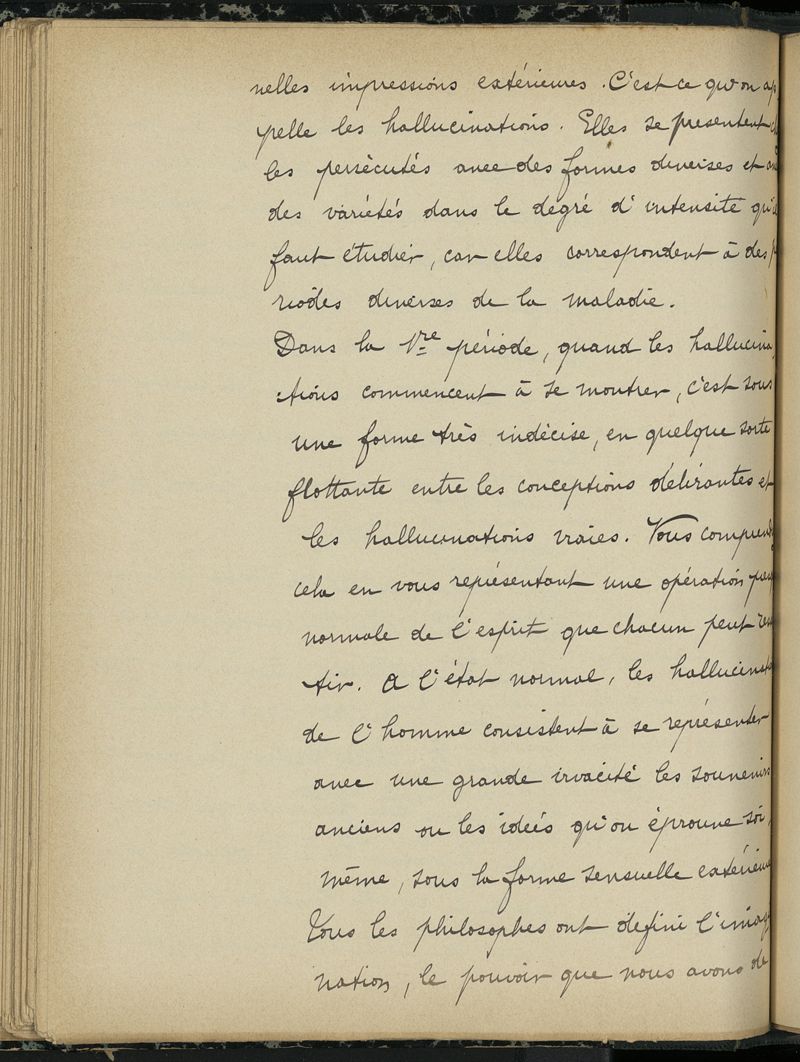 nelles impressions extérieures. C'est ce qu'on ap
pelle les hallucinations. Elles se presentent
les persécutés avec des formes diverses et
des variétés dans le degré d'intensité qu'il
faut étudier, car elles correspondent à des
riodes diverses de la maladie.
Dans la 1re période, quand les hallucina
tions commencent à se montrer, c'est sous
une forme très indécise, en quelque sorte
flottante entre les conceptions délirantes et
les hallucinations vraies. Vous comprendr
cela en vous représentant une opération
normale de l'esprit que chacun peut
tir. A l'état normal, les hallucinat
de l'homme consistent à se représenter
avec une grande vivacité les souvenirs
anciens ou les idées qu'on éprouve soi
même, sous la forme sensuelle extérieure
Tous les philosophes ont defini l'imagi
nation, le pouvoir que nous avons de